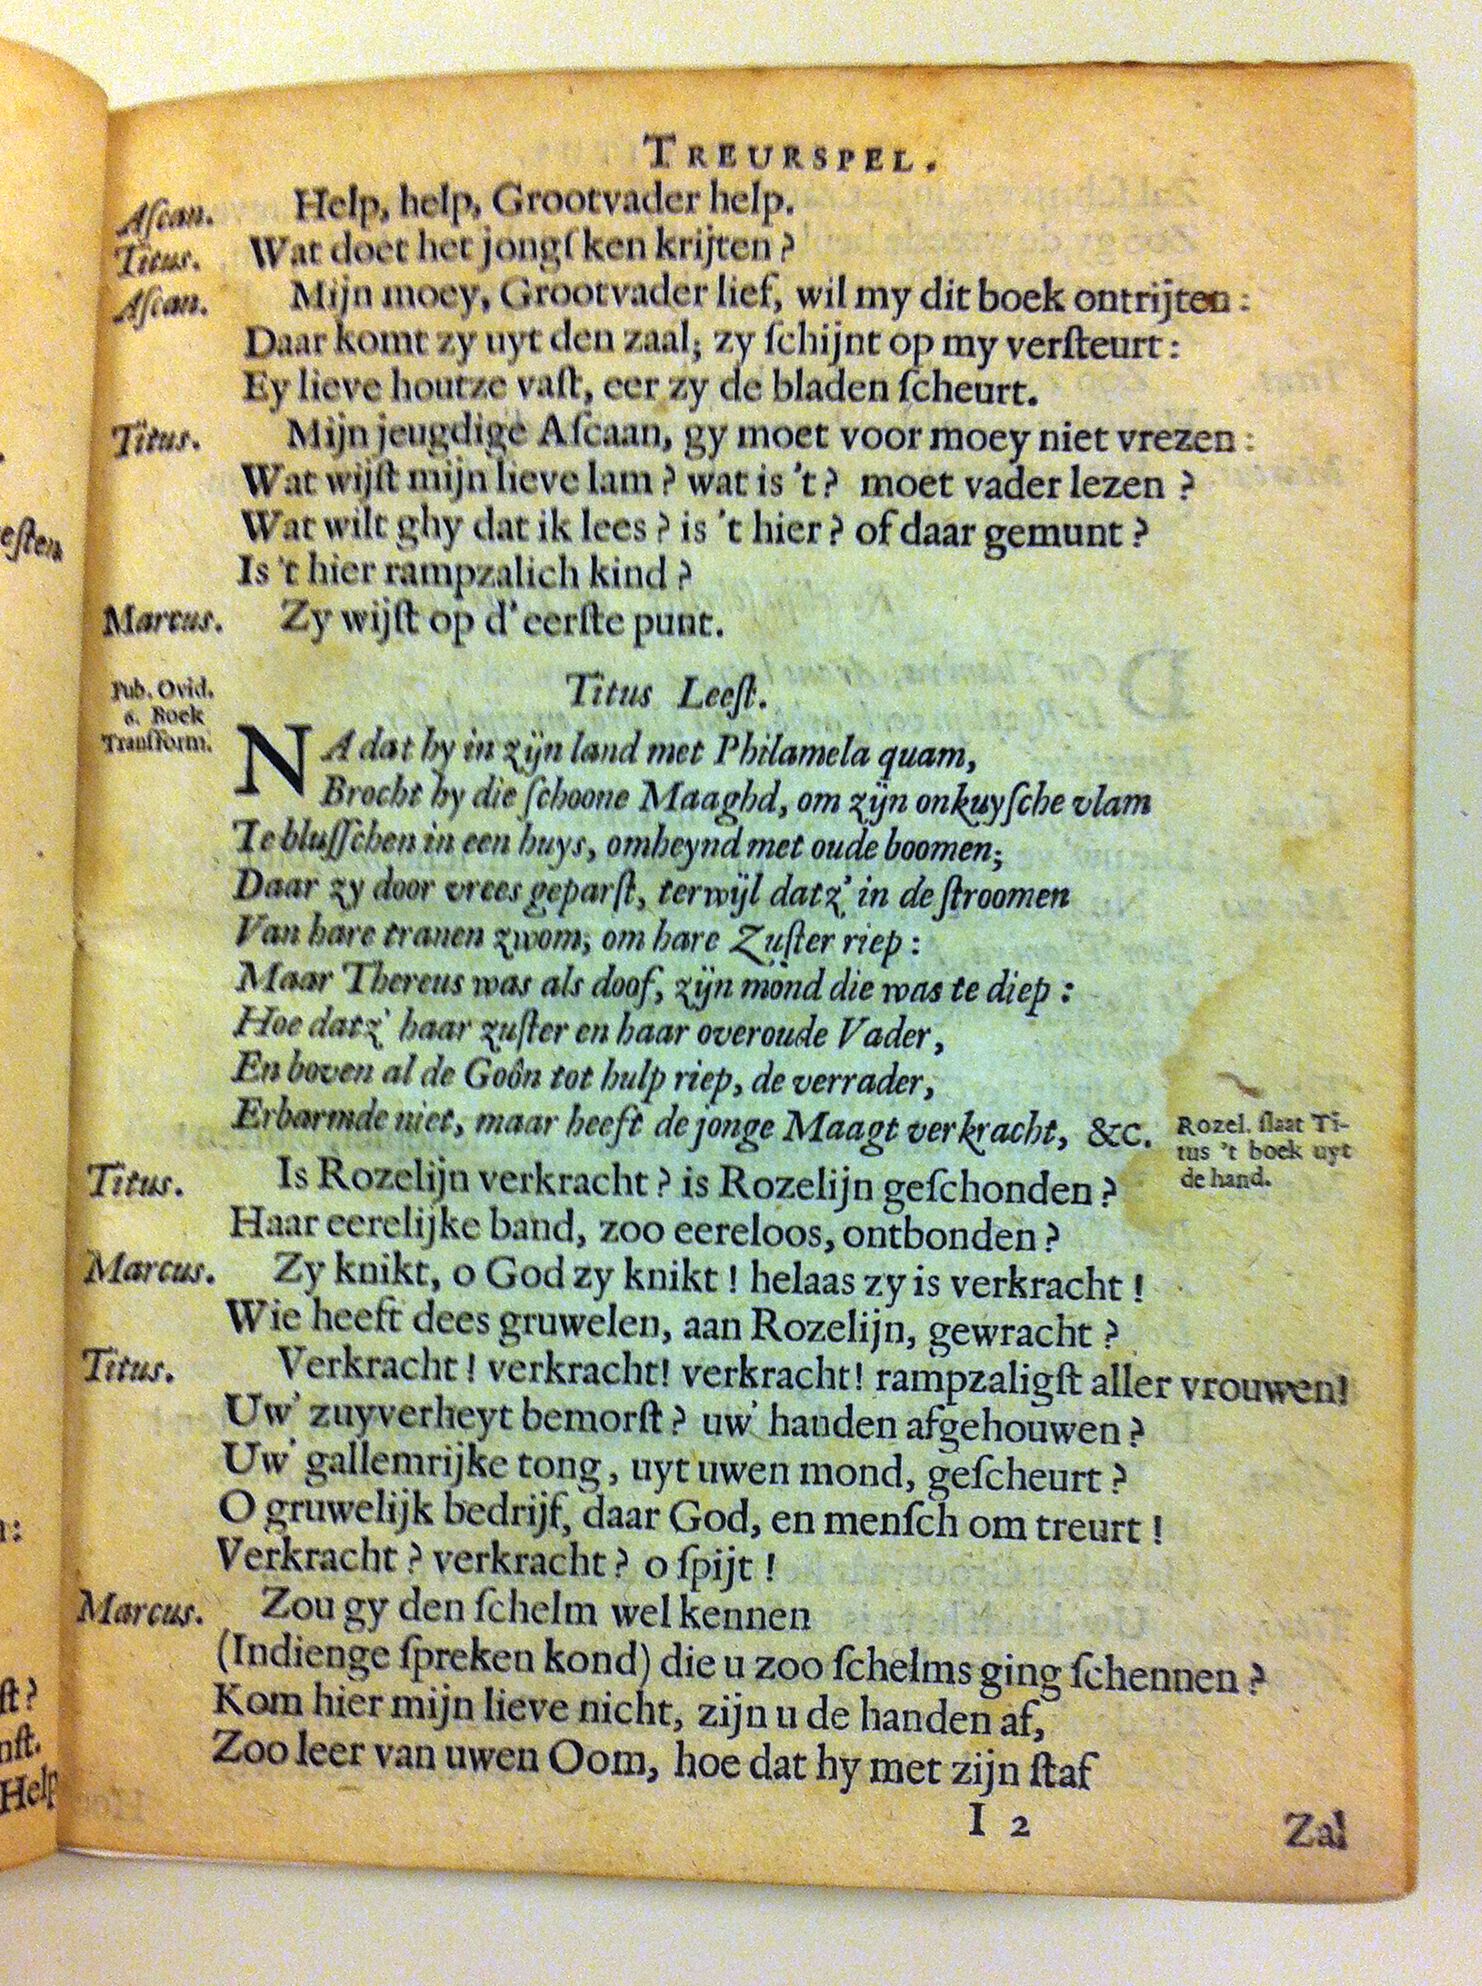 TREURSPEL.
Aſcan. Help, help, Grootvader help.
Titus. Wat doet het jongſken krijten?
Aſcan. Mijn moey, Grootvader lief, wil my dit boek ontrijten:
Daar komt zy uyt den zaal; zy ſchijnt op my verſteurt:
Ey lieve houtze vaſt, eer zy de bladen ſcheurt.
Titus. Mijn jeugdige Aſcaan, gy moet voor moey niet vrezen:
Wat wijſt mijn lieve lam? wat is 't? moet vader lezen?
Wat wilt ghy dat ik lees? is 't hier? of daar gemunt?
Is 't hier rampzalich kind?
Marcus. Zy wijſt op d' eerſte punt.
Pub. Ovid.
6. Boek
Tranſform.
Titus Leeſt.
NA dat hy in zijn land met Philamela quam,
Brocht hy die ſchoone Maaghd, om zijn onkuyſche vlam
Te bluſſchen in een huys, omheynd met oude boomen;
Daar zy door vrees geparſt, terwijl datz' in de ſtroomen
Van hare tranen zwom; om hare Zuſter riep:
Maar Thereus was als doof, zijn mond die was te diep:
Hoe datz' haar zuſter en haar overoude Vader,
En boven al de Goôn tot hulp riep, de verrader,
Erbarmde niet, maar heeft de jonge Maagt verkracht, &c.
Rozel. ſlaat Ti-
tus 't boek uyt
de hand.
Titus. Is Rozelijn verkracht? is Rozelijn geſchonden?
Haar eerelijke band, zoo eereloos, ontbonden?
Marcus. Zy knikt, o God zy knikt! helaas zy is verkracht!
Wie heeft dees gruwelen, aan Rozelijn, gewracht?
Titus. Verkracht! verkracht! verkracht! rampzaligſt aller vrouwen!
Uw' zuyverheyt bemorſt? uw' handen afgehouwen?
Uw' gallemrijke tong, uyt uwen mond, geſcheurt?
O gruwelijk bedrijf, daar God, en menſch om treurt!
Verkracht? verkracht? o ſpijt!
Marcus. Zou gy den ſchelm wel kennen
(Indienge ſpreken kond) die u zoo ſchelms ging ſchennen?
Kom hier mijn lieve nicht, zijn u de handen af,
Zoo leer van uwen Oom, hoe dat hy met zijn ſtaf
I 2
Zal